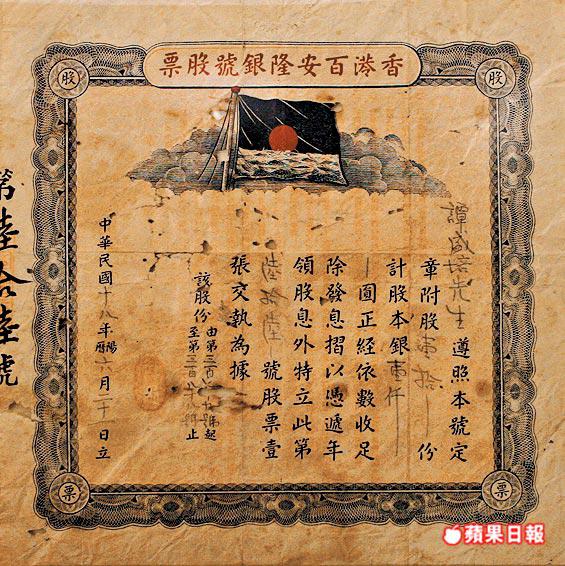 香港百安隆銀號股票
股
股
譚先生遵照本號定
章附股拾份
計股本銀壹仟
圓正經依數收足
除發息摺以憑遞年
領股息外特立此第
陸拾陸號股票壹
張交執為據
該股份由第三百號起
至第三百止
中華民國十八年陽曆六月二十一日立
第陸拾陸號
票
票
蘋果日報